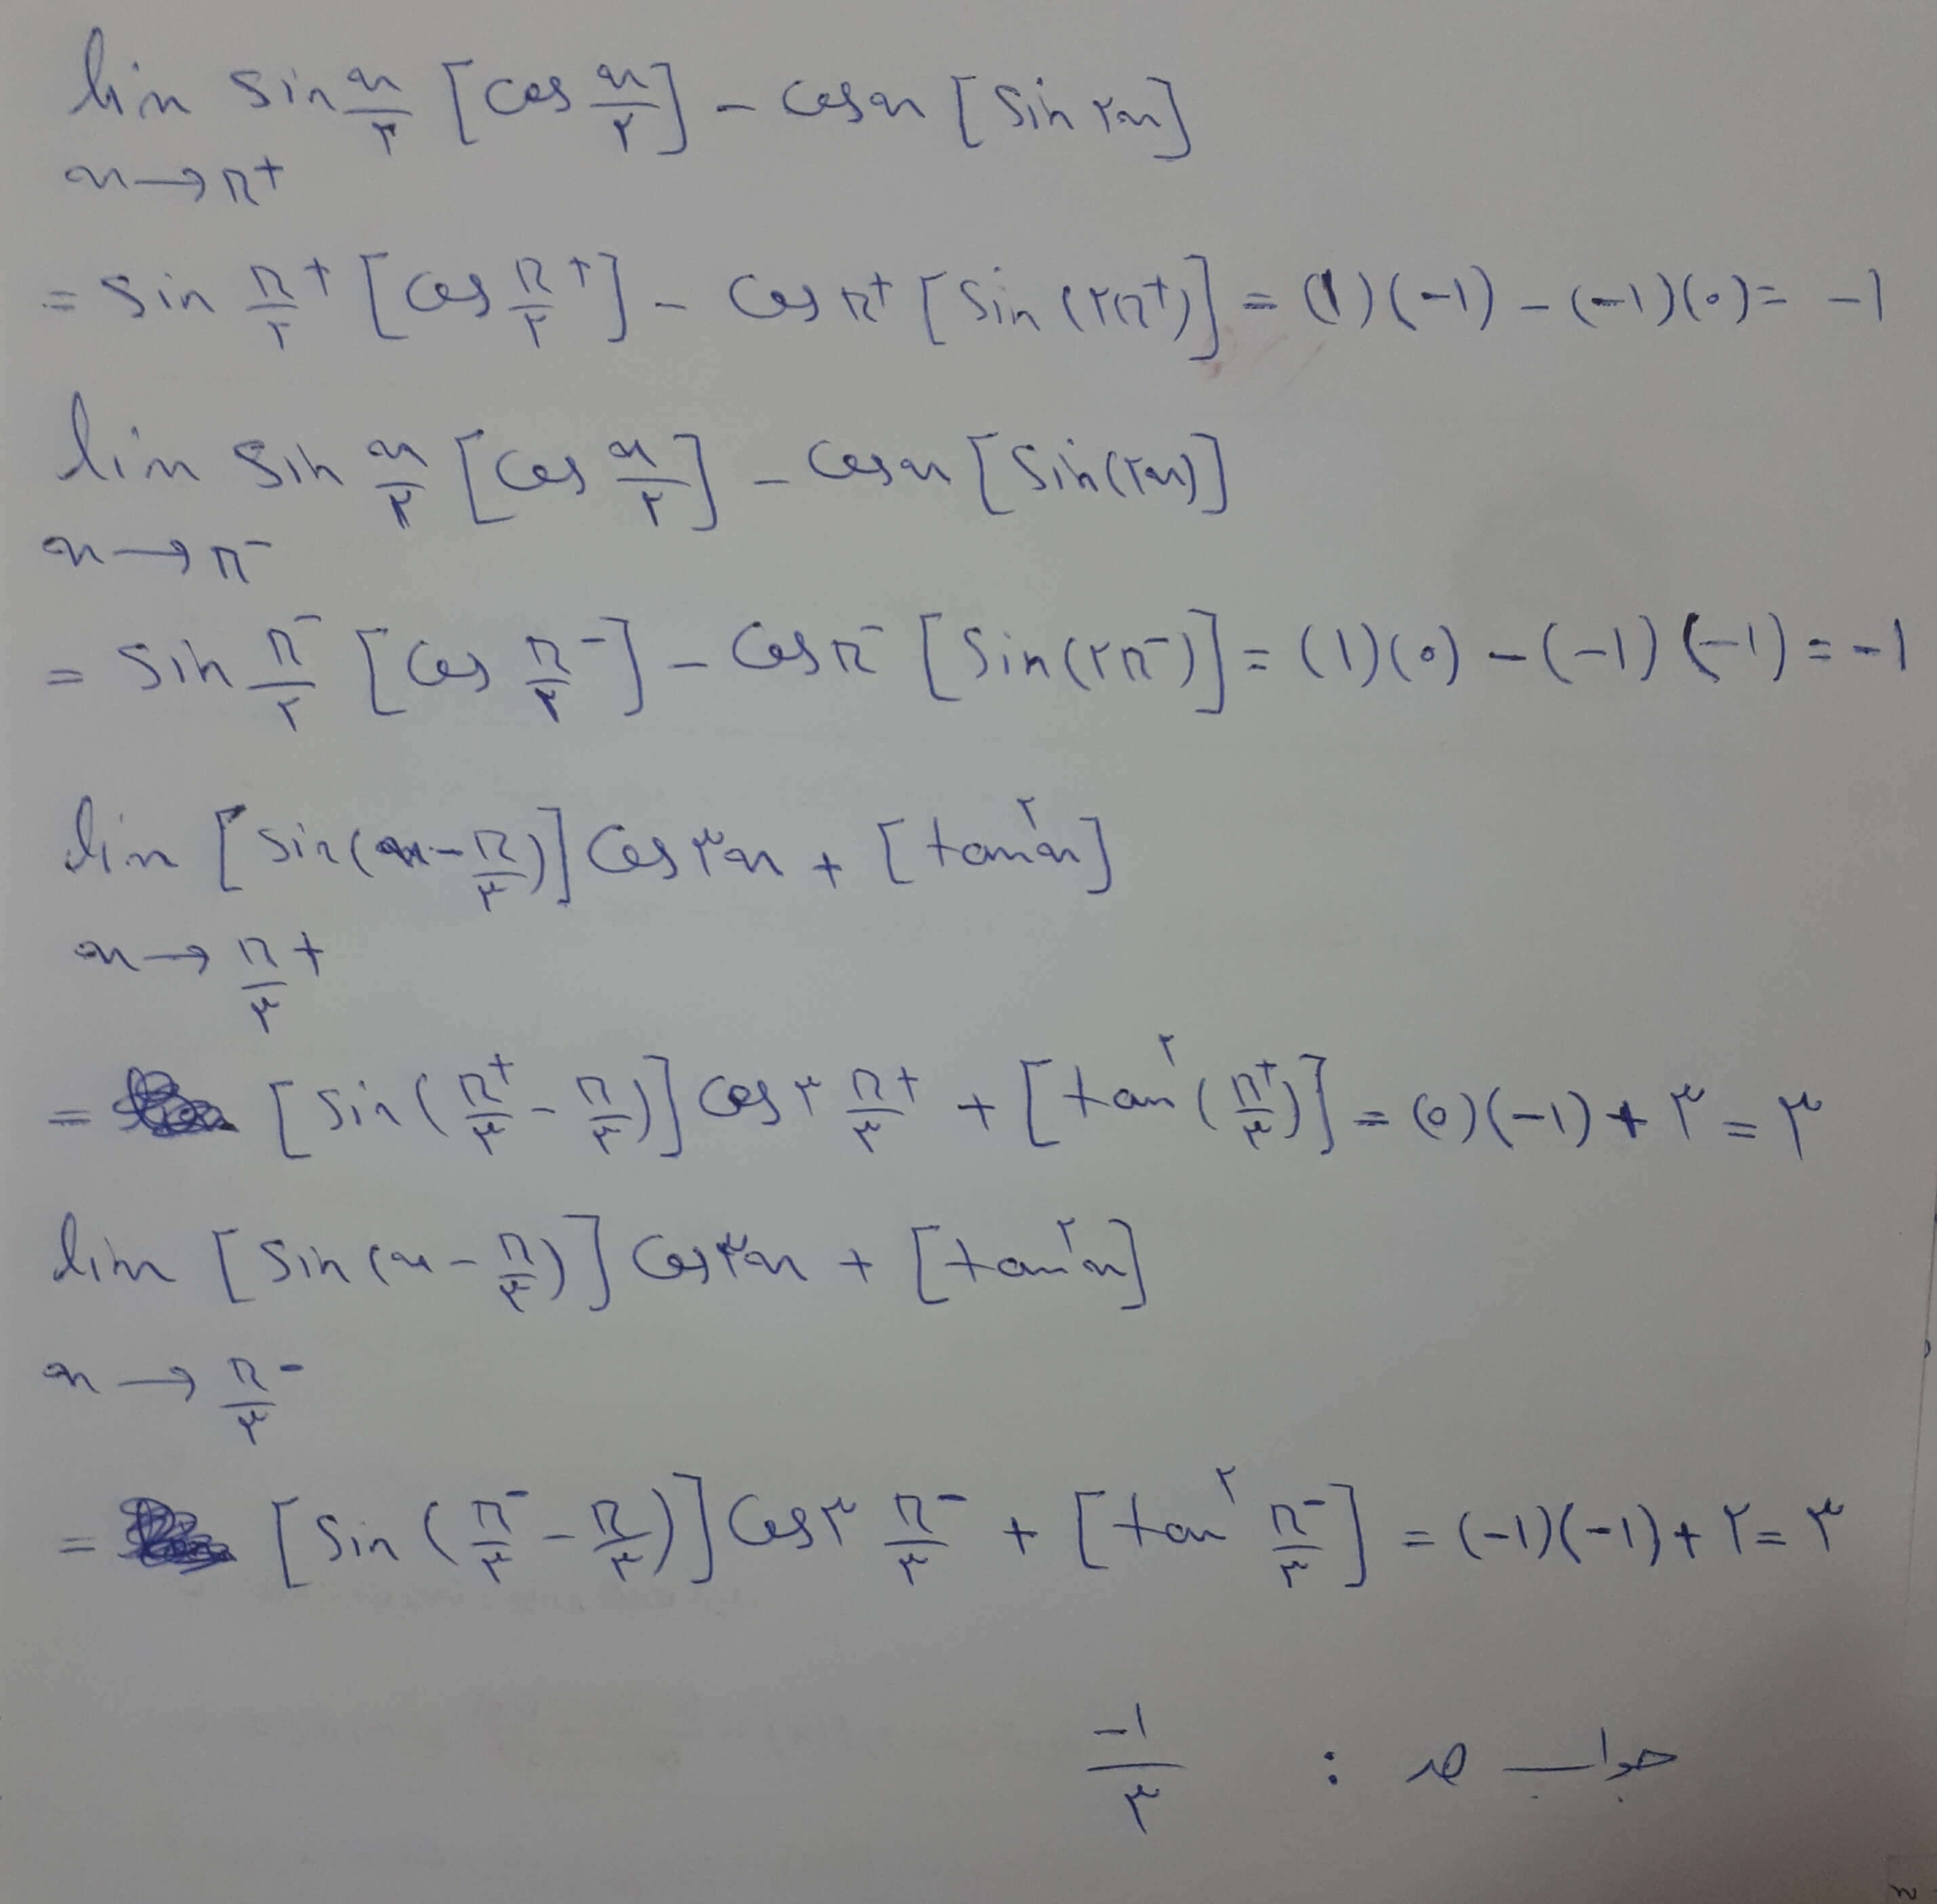 lim sin x/۲ [cos x/۲] - cos x [sin ۲x]
x → π⁺
= sin π⁺/۲ [cos π⁺/۲] - cos π⁺ [sin (۲π⁺)] = (۱)(-۱) - (-۱)(۰) = -۱
lim sin x/۲ [cos x/۲] - cos x [sin(۲x)]
x → π⁻
= sin π⁻/۲ [cos π⁻/۲] - cos π⁻ [sin(۲π⁻)] = (۱)(۰) - (-۱)(-۱) = -۱
lim [sin(x - π/۳)] cos ۳x + [tan²x]
x → π⁺/۳
= [sin (π⁺/۳ - π/۳)] cos ۳ π⁺/۳ + [tan² (π⁺/۳)] = (۰)(-۱) + ۳ = ۳
lim [sin (x - π/۳)] cos ۳x + [tan²x]
x → π⁻/۳
= [sin (π⁻/۳ - π/۳)] cos ۳ π⁻/۳ + [tan² π⁻/۳] = (-۱)(-۱) + ۲ = ۳
جواب حد : -۱/۳